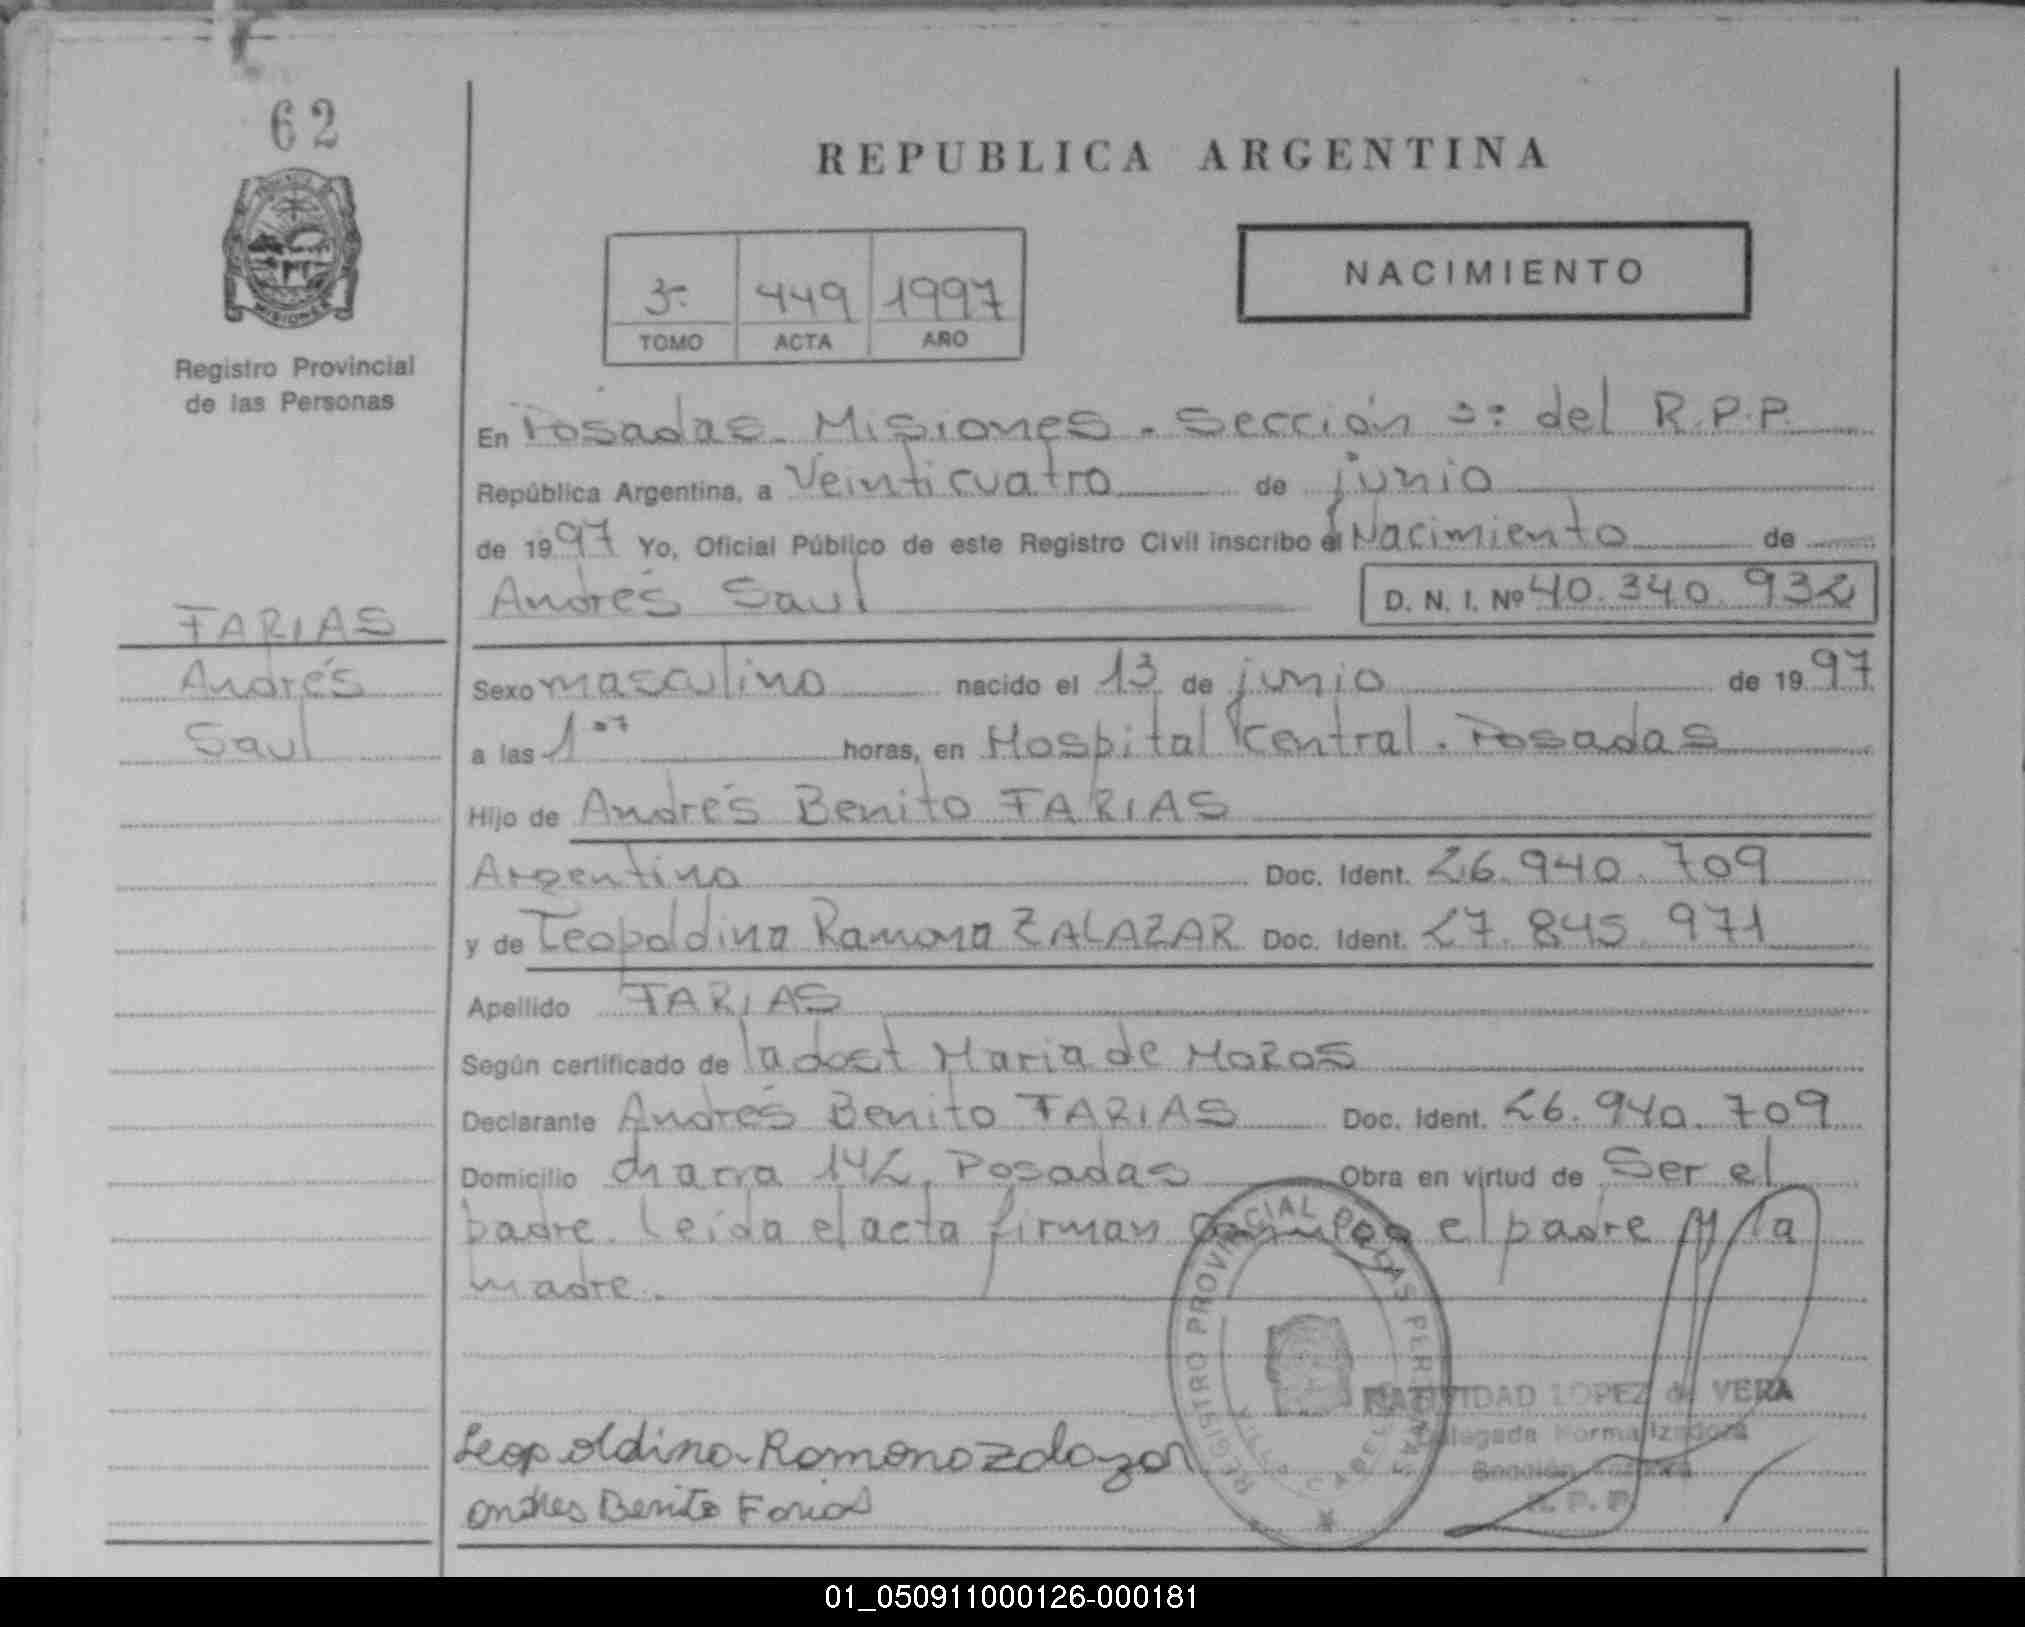 62
REPUBLICA ARGENTINA
NACIMIENTO
3ª 449 1997
TOMO ACTA AÑO
MISIONES
Registro Provincial
de las Personas
En Posadas. Misiones. Sección 3ª del R.P.P.
República Argentina, a Veinticuatro de junio
de 1997 Yo, Oficial Público de este Registro Civil inscribo el Nacimiento de
Andrés Saul D. N. I. Nº 40.340.932
FARIAS
Andrés
Saul
Sexo masculino nacido el 13 de junio de 1997
a las 1 07 horas, en Hospital Central. Posadas
Hijo de Andrés Benito FARIAS
Argentino Doc. Ident. 26.940.709
y de Leopoldina Ramona ZALAZAR Doc. Ident. 27.845.971
Apellido FARIAS
Según certificado de la dost Maria de Mozos
Declarante Andrés Benito FARIAS Doc. Ident. 26.940.709
Domicilio chacra 142, Posadas Obra en virtud de Ser el
padre. Leida el acta firman conmigo el padre y la
madre.
REGISTRO PROVINCIAL DE LAS PERSONAS
NATIVIDAD LOPEZ de VERA
Delegada Normalizadora
Sección
R. P. P.
Leopoldina Ramona Zalazar
Andres Benito Farias
01_050911000126-000181